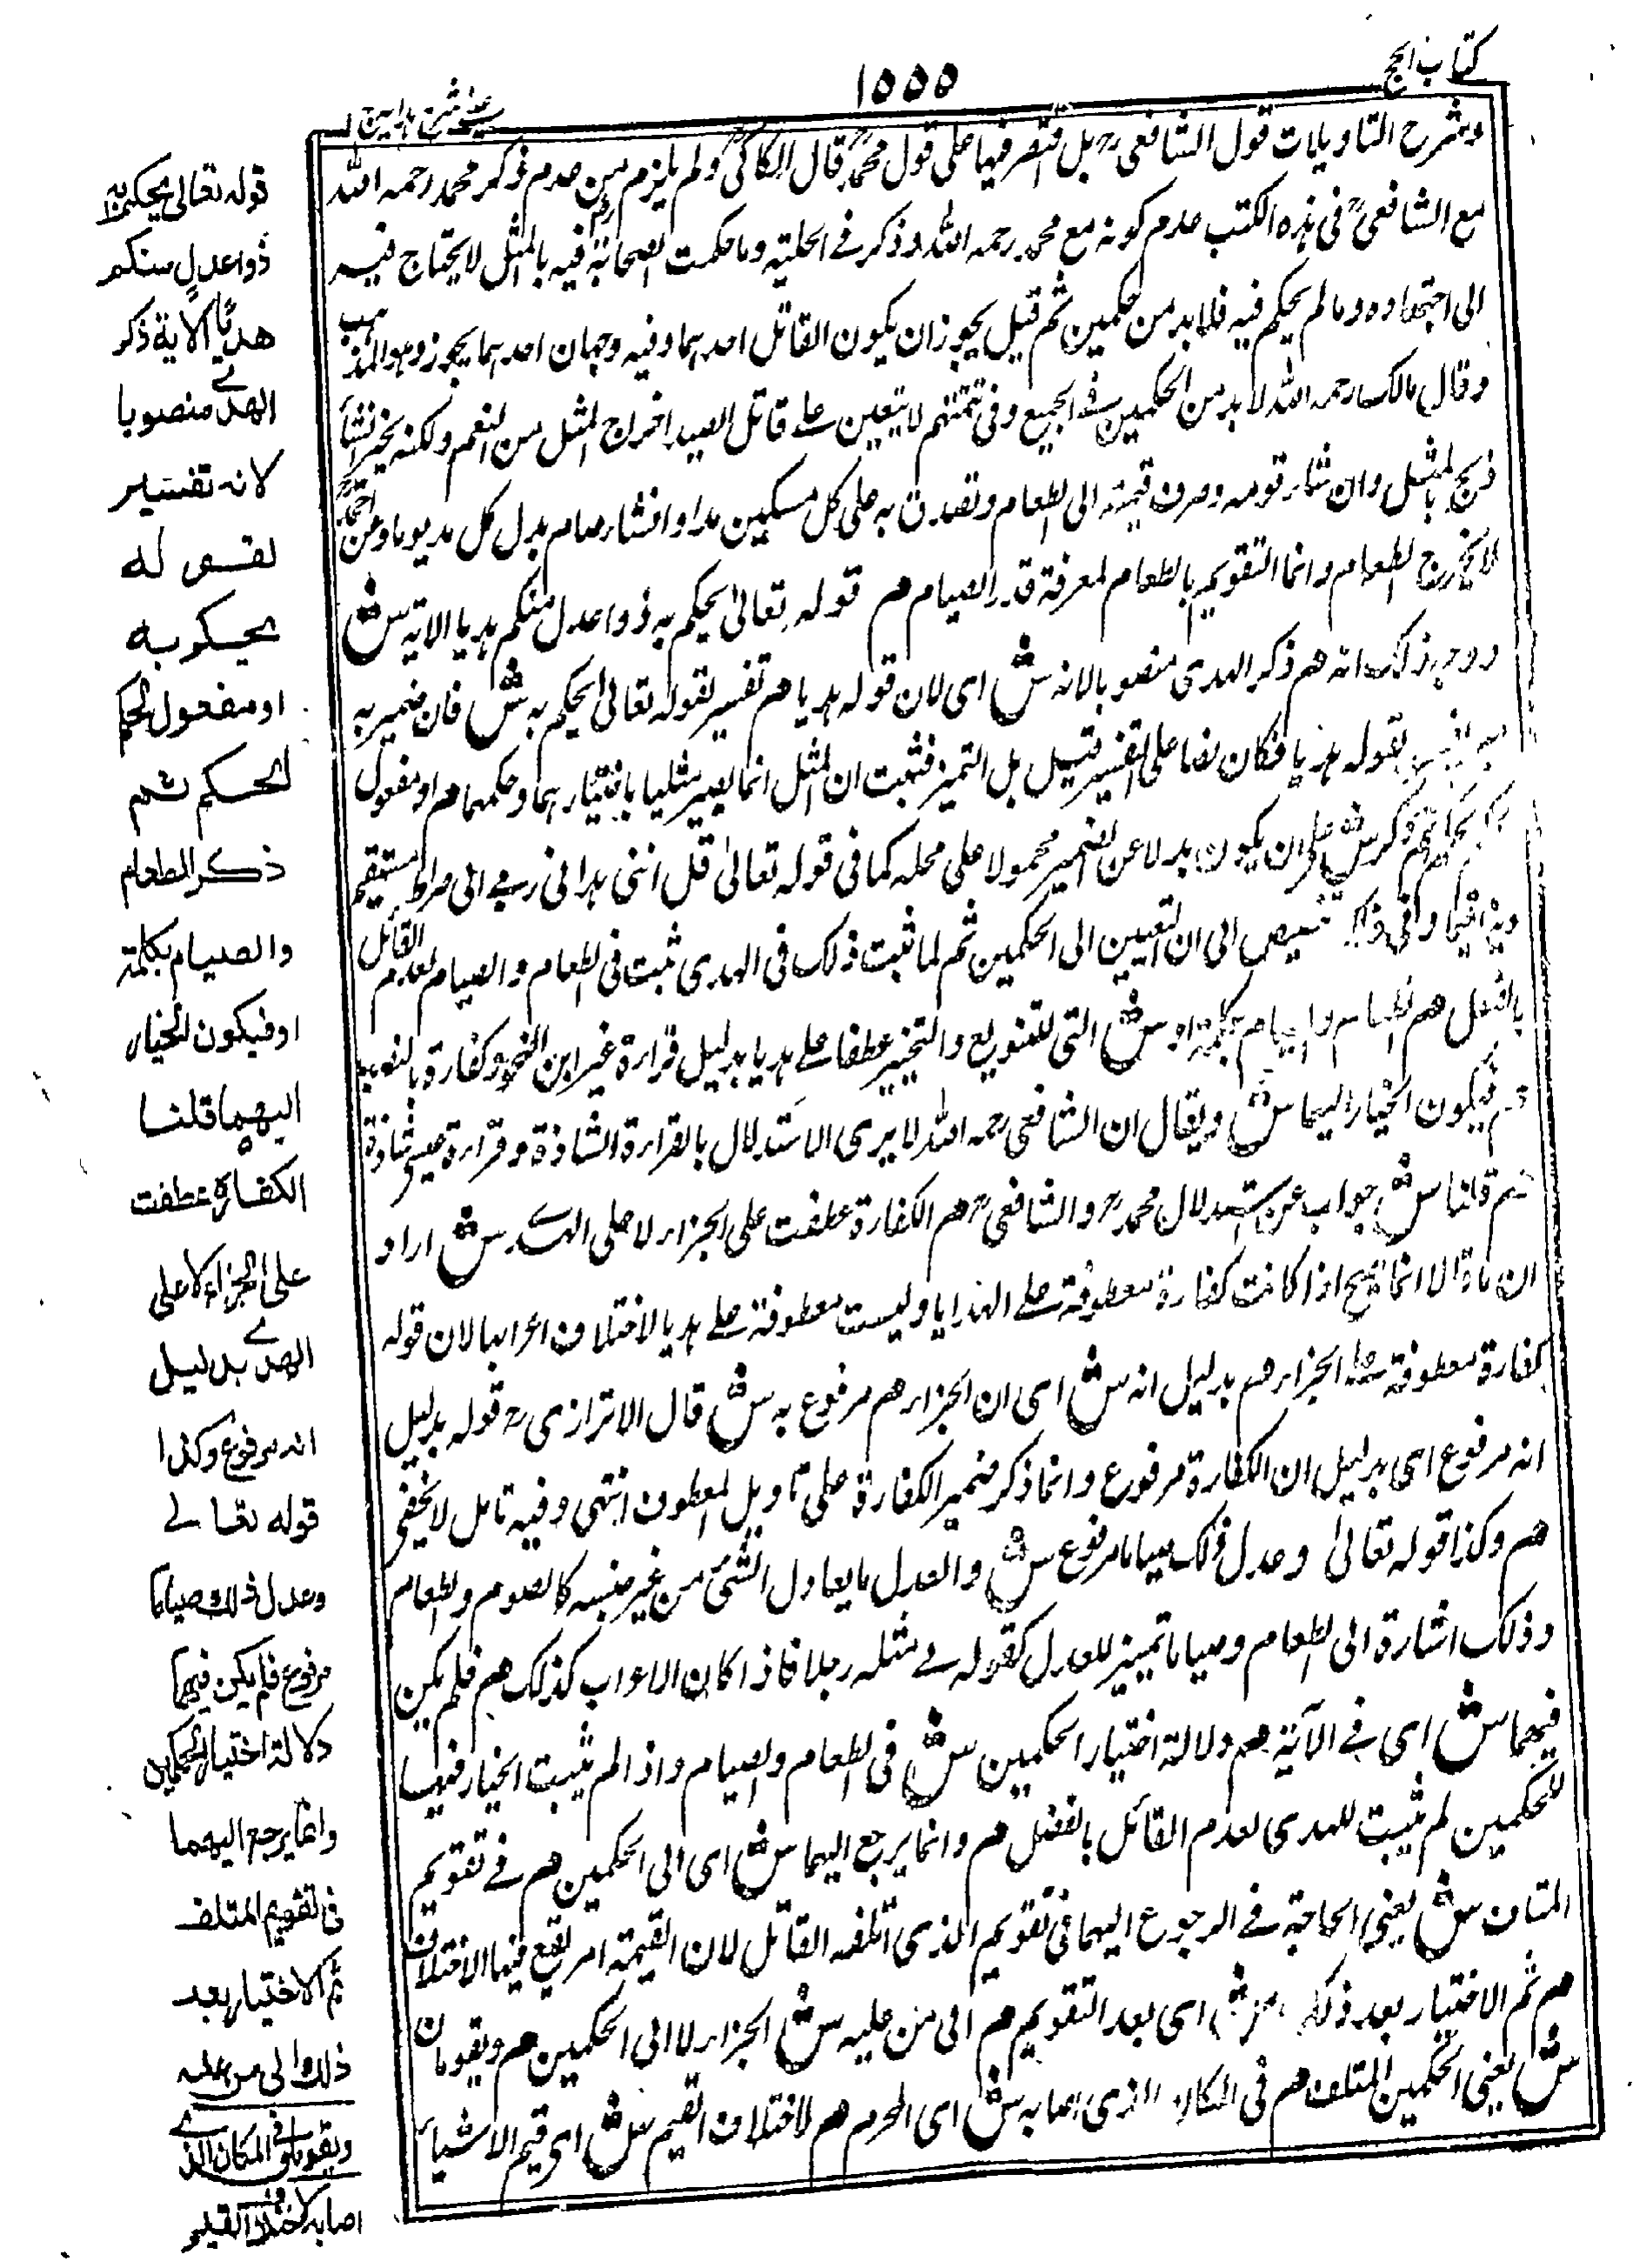 كتاب الحج
١٥٥٥
عینی شرح ہدایہ ج ١
وشرح التاويلات قول الشافعى رح بل اقتصر فيها على قول محمد رح قال الكاكى رح ولم يلزم من عدم ذكر محمد رحمه الله
مع الشافعى رح فى هذه الكتب عدم كونه مع محمد رحمه الله وذكر فى الحلية وما حكمت الصحابة رض فيه بالمثل لا يحتاج فيه
الى اجتهاده وما لم يحكم فيه فلابد من حكمين ثم قيل يجوز ان يكون القاتل احدهما وفيه وجهان احدهما يجوز وهو المذهب
وقال مالك رحمه الله لابد من الحكمين فى الجميع وفى تتمتهم لا يتعين على قاتل الصيد اخراج المثل من النعم ولكنه يخير انشاء
ذبح المثل وان شاء قومه وصرف قيمته الى الطعام وتصدق به على كل مسكين مدا وانشاء صام بدل كل مد يوما وعن احمد رح
لا يخرج الطعام وانما التقويم بالطعام لمعرفة قدر الصيام هم قوله تعالى يحكم به ذوا عدل منكم هديا الاية ش
ووجه ذلك انه هم ذكر الهدى منصوبا لانه ش اى لان قوله هديا هم تفسير لقوله تعالى يحكم به ش فان ضمير به
بقوله هديا فكان نصا على التفسير قيل بل التميز فثبت ان المثل انما يصير مثليا باختيارهما وحكمهما هم او مفعول
ش على ان يكون بدلا عن الضمير محمولا على محله كما فى قوله تعالى قل اننى هدانى ربى الى صراط مستقيم
وفى ذلك تنصيص الى ان التعيين الى الحكمين ثم لما ثبت ذلك فى الهدى ثبت فى الطعام والصيام لعدم القائل
بالفصل هم الطعام والصيام بكلمة او ش التى للتنويع والتخيير عطفا على هديا بدليل قراءة عيسى ابن النحوى وكفارة بالنصب
هم فيكون الخيار اليهما ش ويقال ان الشافعى رحمه الله لا يرى الاستدلال بالقراءة الشاذة وقراءة عيسى شاذة
هم قلنا ش جواب عن استدلال محمد رح والشافعى رح هم الكفارة عطفت على الجزاء لا على الهدى ش اراد
ان ما قالا انما يصح اذا كانت كفارة معطوفة على الهدايا وليست معطوفة على هديا لاختلاف اعرابها لان قوله
كفارة معطوفة على الجزاء هم بدليل انه ش اى ان الجزاء هم مرفوع به ش قال الاترازى رح قوله بدليل
انه مرفوع اى بدليل ان الكفارة مرفوع وانما ذكر ضمير الكفارة على تاويل المعطوف انتهى وفيه تامل لا يخفى
هم وكذا قوله تعالى وعدل ذلك صياما مرفوع ش والعدل ما يعادل الشئ من غير جنسه كالصوم والطعام
وذلك اشارة الى الطعام وصياما تمييز للعدل كقوله لى مثله رجلا فاذا كان الاعراب كذلك هم فلم يكن
فيهما ش اى فى الآية هم دلالة اختيار الحكمين ش فى الطعام والصيام واذا لم يثبت الخيار فيهما
للحكمين لم يثبت للهدى لعدم القائل بالفصل هم وانما يرجع اليهما ش اى الى الحكمين هم فى تقويم
المتلف ش يعنى الحاجة فى الرجوع اليهما فى تقويم الذى اتلفه القاتل لان القيمة امر يقع فيها الاختلاف
هم ثم الاختيار بعد ذلك ش اى بعد التقويم هم الى من عليه ش الجزاء لا الى الحكمين هم ويقومان
ش يعنى الحكمين المتلف هم فى المكان الذى اصابه ش اى المحرم هم لاختلاف القيم ش اى قيم الاشياء
قوله تعالى يحكم به
ذوا عدل منكم
هديا الاية ذكر
الهدى منصوبا
لانه تفسير
لقوله
يحكم به
او مفعول لحكم
الحكم ثم
ذكر الطعام
والصيام بكلمة
او فيكون الخيار
اليهما قلنا
الكفارة عطفت
على الجزاء لا على
الهدى بدليل
انه مرفوع وكذا
قوله تعالى
وعدل ذلك صياما
مرفوع فلم يكن فيهما
دلالة اختيار الحكمين
وانما يرجع اليهما
فى تقويم المتلف
ثم الاختيار بعد
ذلك الى من عليه
ويقومان فى المكان الذى
اصابه لاختلاف القيم